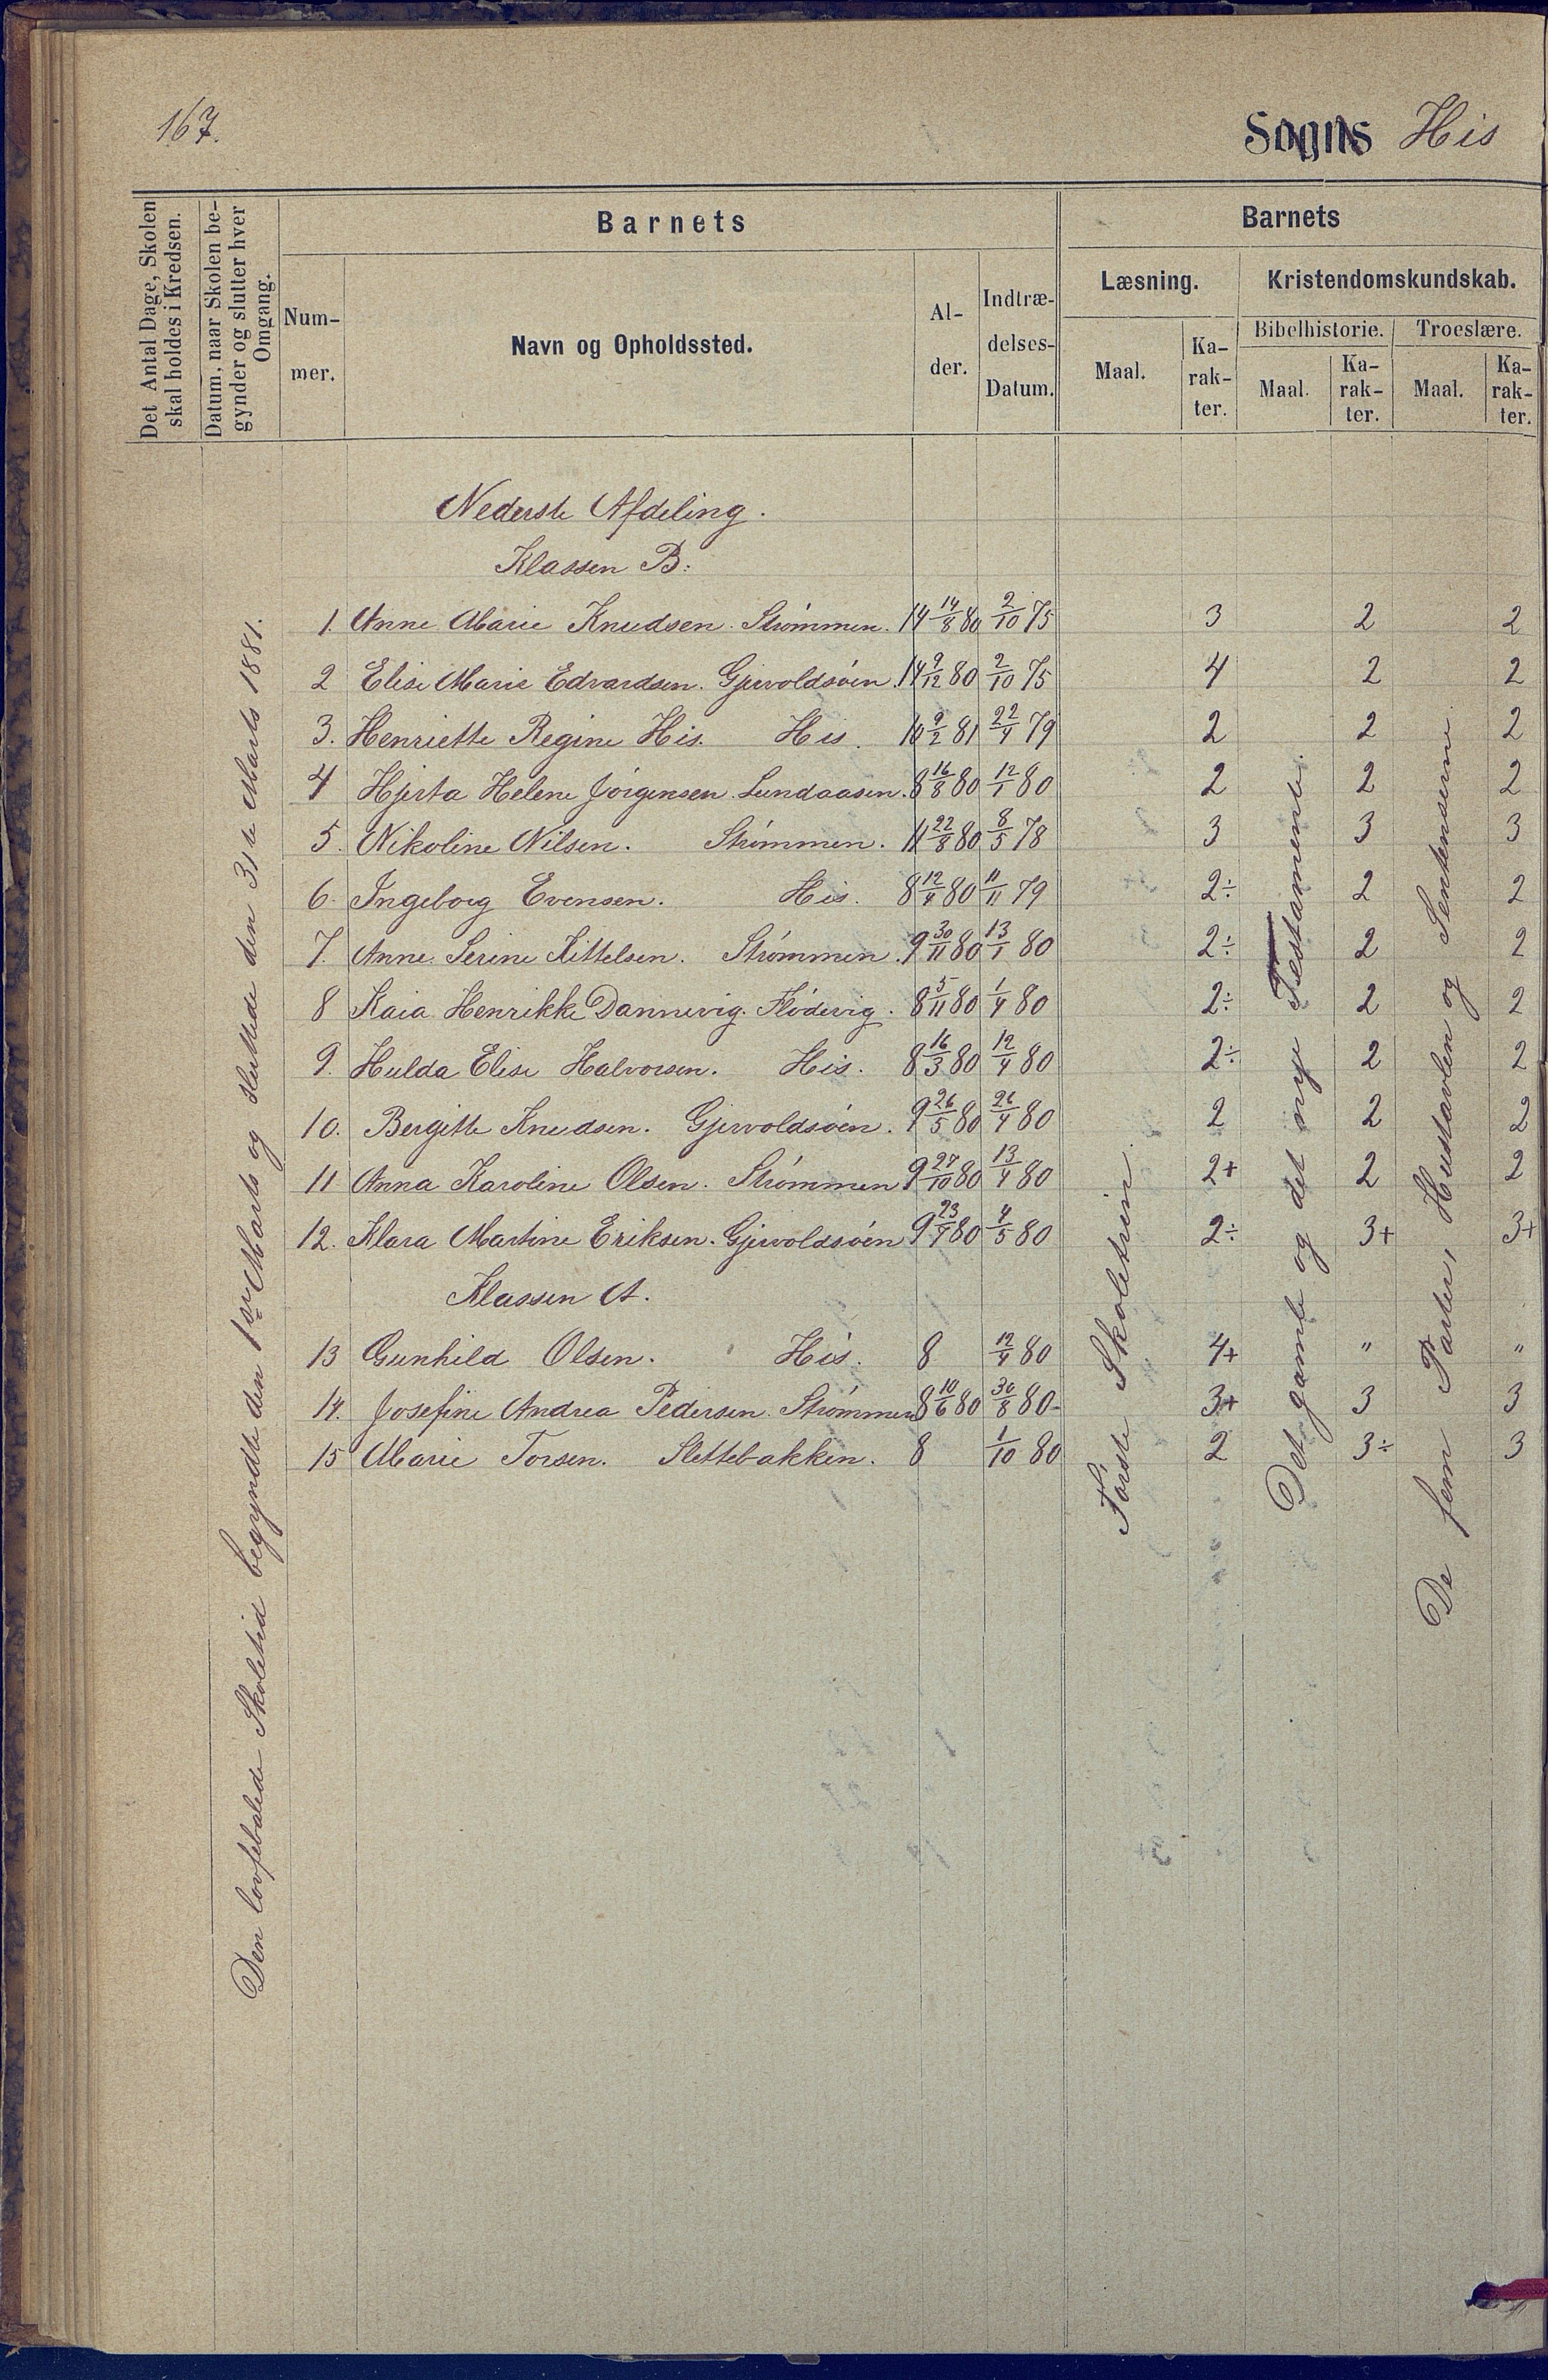 167.
Sogns His
Det Antal Dage, Skolen
skal holdes i Kredsen.
Datum, naar Skolen be-
gynder og slutter hver
Omgang.
Barnets
Num-
mer.
Navn og Opholdssted.
Al-
der.
Indtræ-
delses-
Datum.
Barnets
Læsning.
Maal.
Ka-
rak-
ter.
Kristendomskundskab.
Bibelhistorie.
Maal.
Ka-
rak-
ter.
Troeslære.
Maal.
Ka-
rak-
ter.
Den lovbefalede Skoletid begyndte den 1ste Marts og sluttede den 31te Marts 1881.
Nederste Afdeling.
Klassen B:
1. Anne Marie Knudsen. Strømmen. 14 14/8 80 2/10 75 3 2 2
2 Elise Marie Edvardsen. Gjervoldsøen. 14 9/12 80 2/10 75 4 2 2
3. Henriette Regine His. His. 10 9/2 81 22/4 79 2 2 2
4 Hjerta Helene Jørgensen. Lundaasen. 8 16/8 80 12/1 80 2 2 2
5. Nikoline Nilsen. Strømmen. 11 22/8 80 8/5 78 3 3 3
6. Ingeborg Evensen. His. 8 12/4 80 11/11 79 2÷ 2 2
7. Anne Serine Kittelsen. Strømmen. 9 30/11 80 13/1 80 2÷ 2 2
8 Kaia Henrikke Dannevig. Flødevig. 8 5/11 80 1/4 80 2÷ 2 2
9. Hulda Elise Halvorsen. His. 8 16/3 80 12/4 80 2÷ 2 2
10. Bergitte Knudsen. Gjervoldsøen. 9 26/5 80 26/4 80 2 2 2
11 Anna Karoline Olsen. Strømmen 9 27/10 80 13/4 80 2+ 2 2
12. Klara Martine Eriksen. Gjervoldsøen 9 23/7 80 4/5 80 2÷ 3+ 3+
Klassen A.
13 Gunhild Olsen. His. 8 12/4 80 4+ " "
14. Josefine Andrea Pedersen. Strømmen 8 10/6 80 30/8 80- 3+ 3 3
15 Marie Torsen. Slettebakken. 8 1/10 80 2 3÷ 3
Første Skoletrin.
Det gamle og det nye Testamente.
De fem Parter, Hustavlen og Sentenserne.